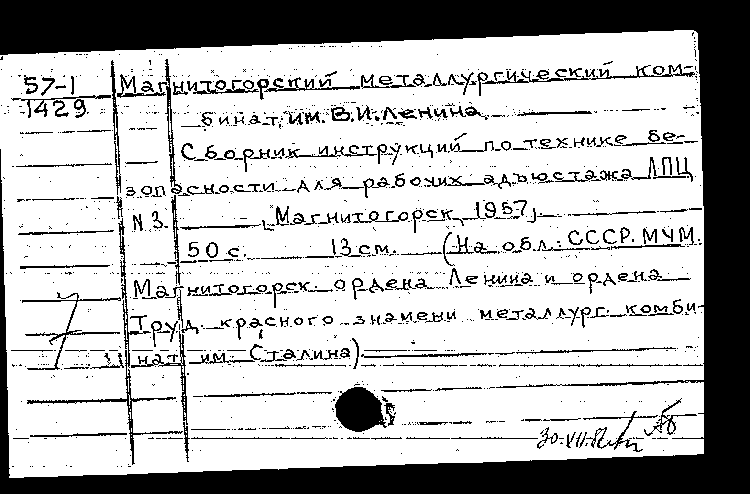 57-1 Магнитогорский металлургический ком-
1429 бинат им. В.И. Ленина
Сборник инструкций по технике бе-
зопасности для рабочих адъюстажа ЛПЦ
N 3. Магнитогорск, 1957,
50 с. 13 см. (На обл.: СССР. МЧМ.
Магнитогорск. ордена Ленина и ордена
Труд. красного знамени металлург. комби-
нат им. Сталина)
30.VII.